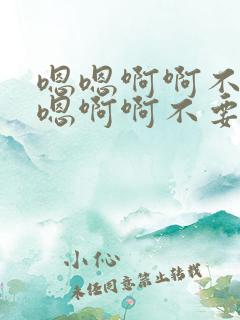 嗯嗯啊啊不
嗯啊啊不要
小伈
未经同意禁止转载